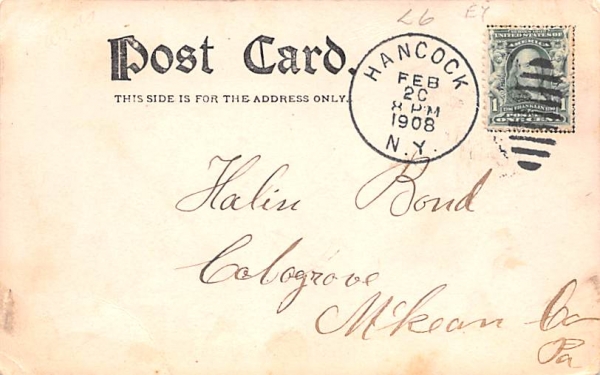 26 EY
Post Card.
THIS SIDE IS FOR THE ADDRESS ONLY.
HANCOCK
FEB
20
8 PM
1908
N.Y.
UNITED STATES OF
AMERICA
1 1
ONE CENT
Halin Bond
Colegrove
M'kean Co
Pa